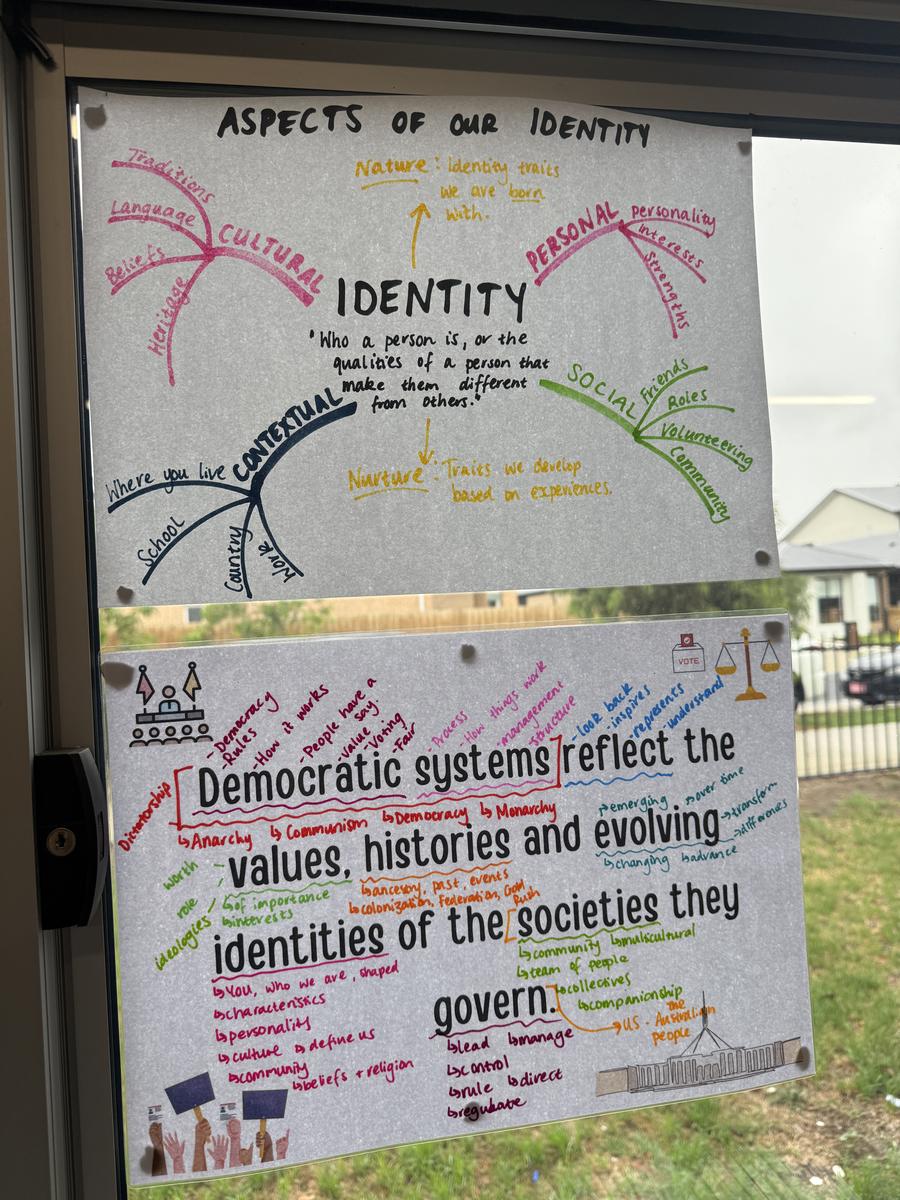 ASPECTS OF OUR IDENTITY
Nature: Identity traits
we are born
with.
CULTURAL
Traditions
Language
Beliefs
Heritage
PERSONAL
Personality
Interests
Strengths
IDENTITY
"Who a person is, or the
qualities of a person that
make them different
from others."
SOCIAL
Friends
Roles
Volunteering
Community
CONTEXTUAL
Where you live
School
Country
Work
Nurture: Traits we develop
based on experiences.
VOTE
- Democracy
- Rules
- How it works
- People have a
say
- value
- Voting
- Fair
- Process
- How things work
- management
- structure
- look back
- inspires
- represents
- understand
Dictatorship
[Democratic systems] reflect the
↳ Anarchy ↳ Communism ↳ Democracy ↳ Monarchy
emerging over time
transform
differences
values, histories and evolving
↳ changing ↳ advance
worth
role
ideologies
↳ of importance
↳ interests
↳ ancestry, past, events
↳ colonization, Federation, Gold
Rush
identities of the [societies they
↳ You, who we are, shaped
↳ characteristics
↳ personality
↳ culture ↳ define us
↳ community
↳ beliefs + religion
↳ community ↳ multicultural
↳ team of people
↳ collectives
↳ companionship
govern.]
US - the
Australian
people
↳ lead ↳ manage
↳ control
↳ rule ↳ direct
↳ regulate